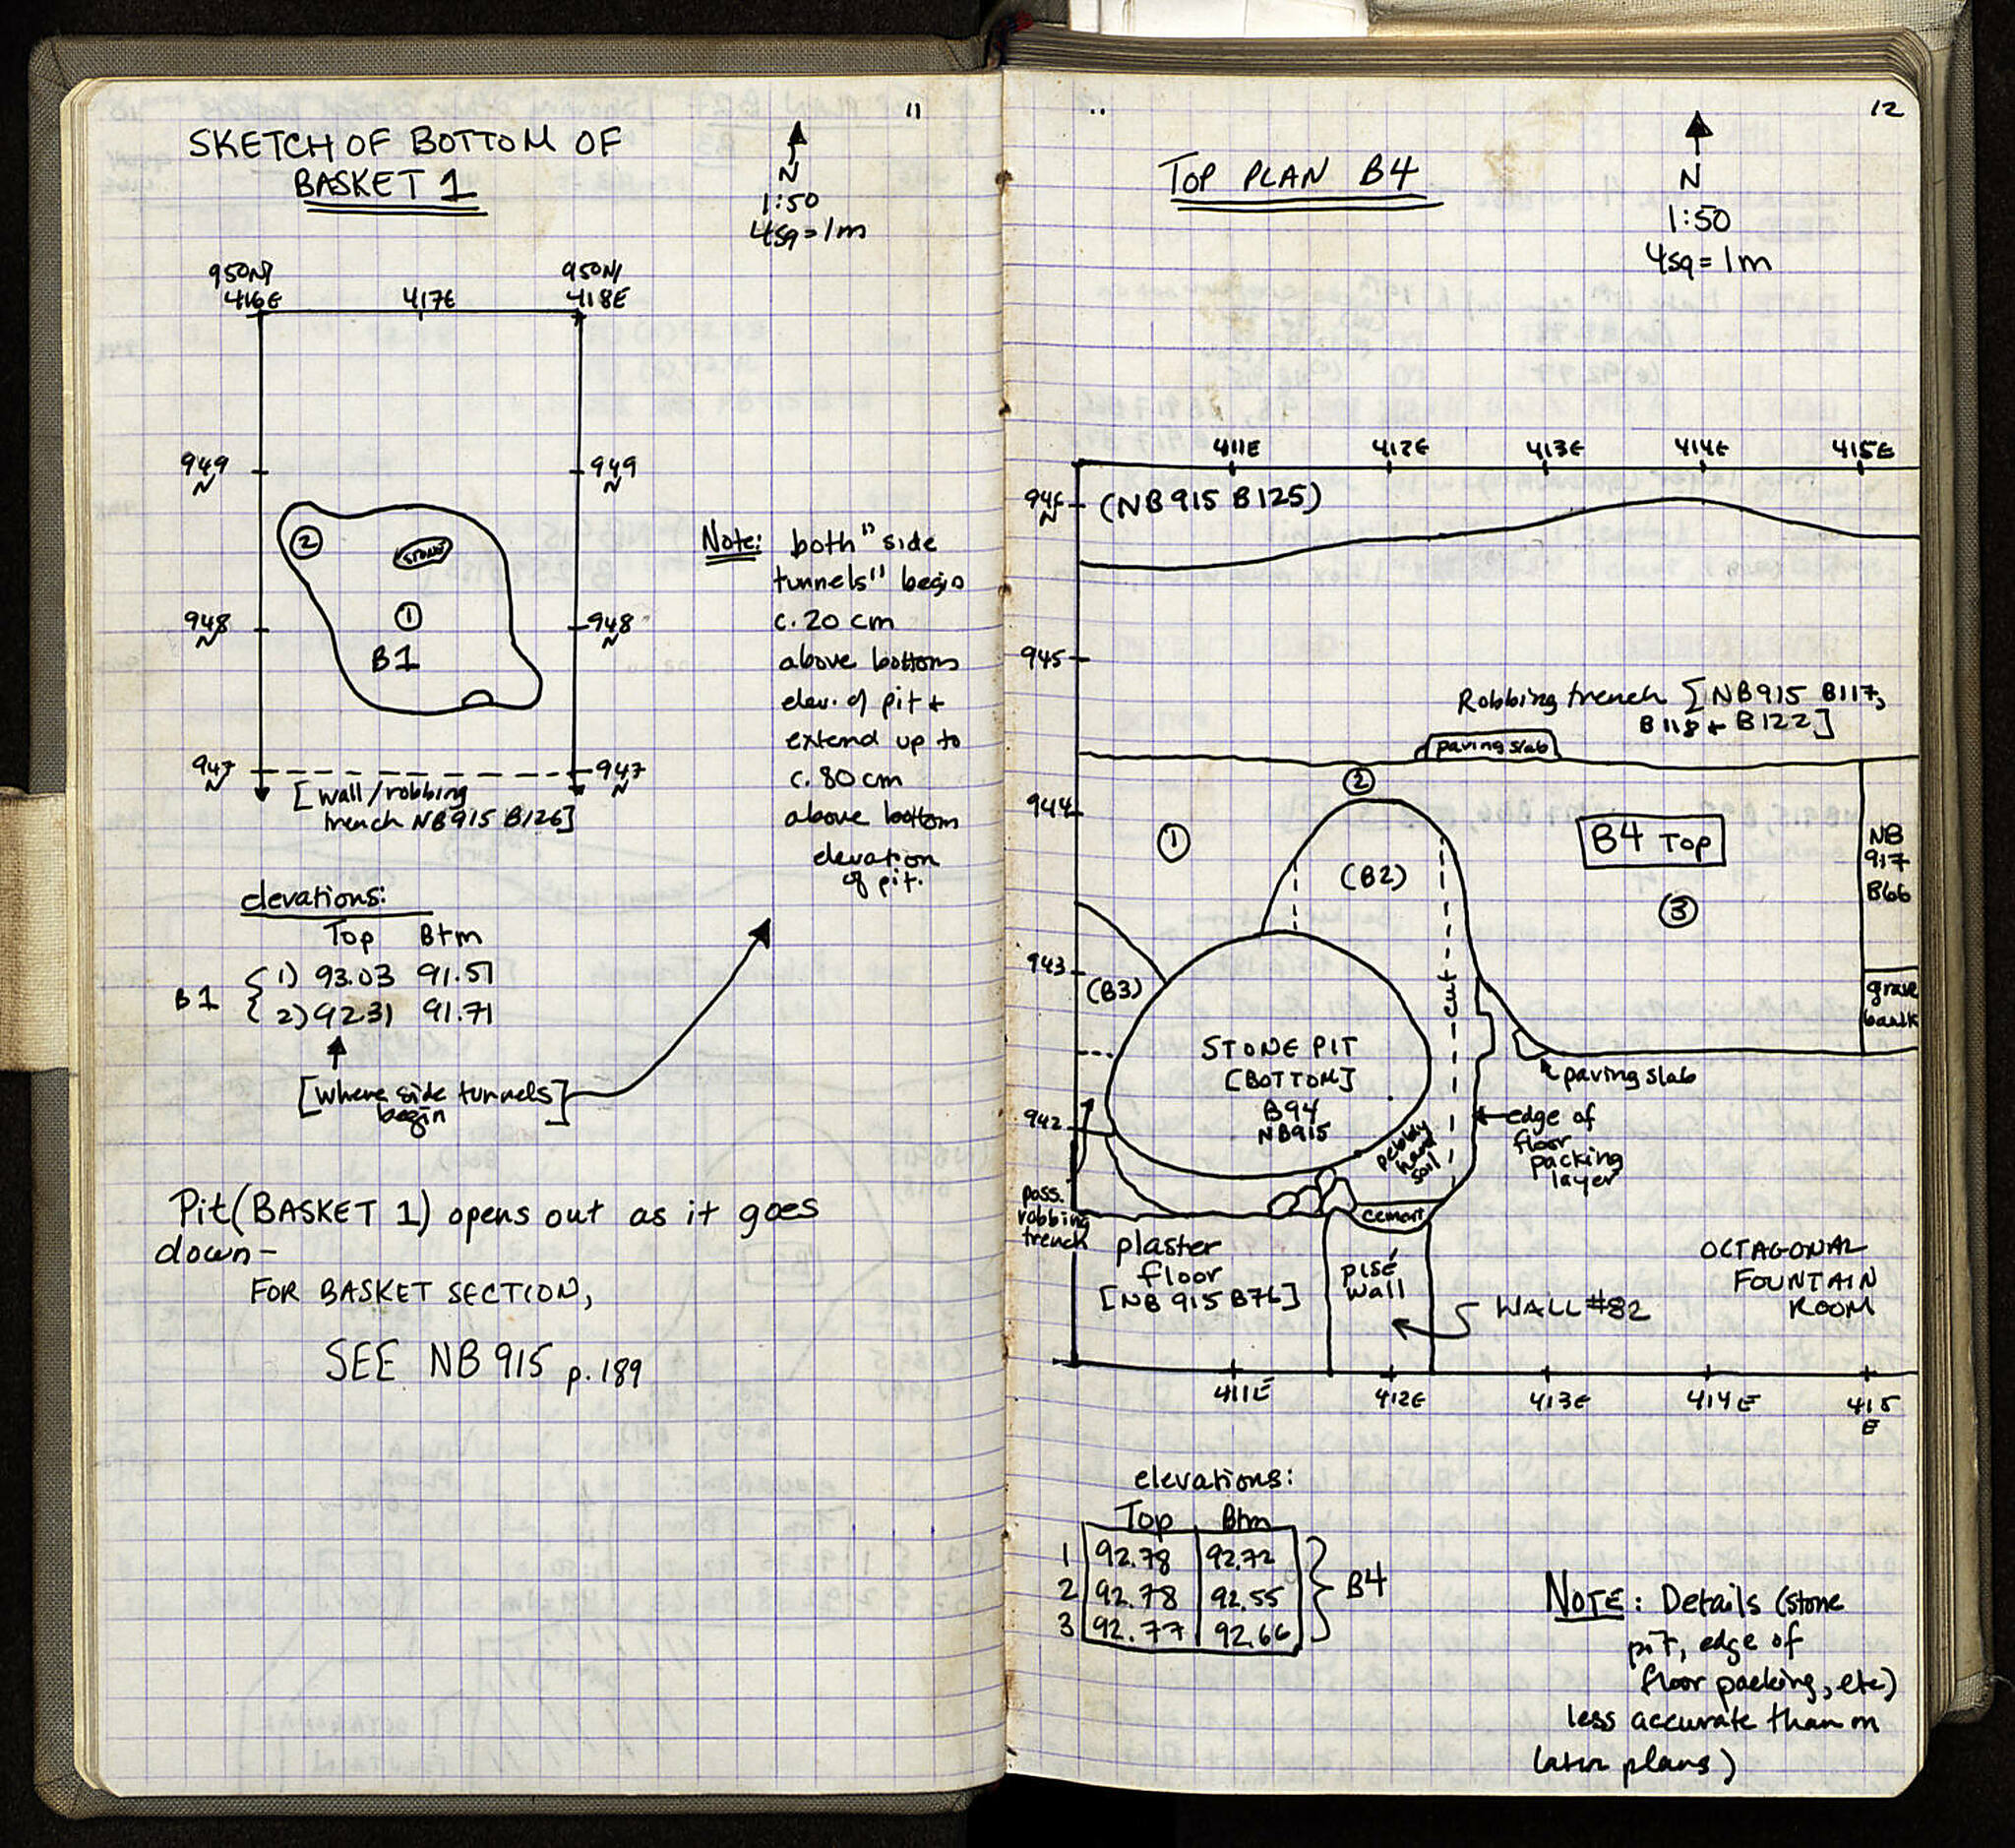 11
SKETCH OF BOTTOM OF
BASKET 1
N
1:50
4sq=1m
950N/
416E
417E
950N/
418E
949
N
949
N
2
STONE
1
B1
948
N
948
N
947
N
947
N
[wall/robbing
trench NB915 B126]
Note: both "side
tunnels" begin
c. 20 cm
above bottom
elev. of pit +
extend up to
c. 80 cm
above bottom
elevation
of pit.
elevations:
Top Btm
B1 { 1) 93.03 91.51
2) 92.31 91.71
[where side tunnels]
begin
Pit (BASKET 1) opens out as it goes
down –
FOR BASKET SECTION,
SEE NB 915 p. 189
12
TOP PLAN B4
N
1:50
4sq=1m
411E 412E 413E 414E 415E
946
N
(NB 915 B125)
945
Robbing trench [NB915 B117,
B118 + B122]
paving slab
944
1
2
(B2)
B4 TOP
3
NB
917
B66
943
(B3)
cut
grave
baulk
STONE PIT
[BOTTOM]
B94
NB915
paving slab
942
pebbly
hard
soil
edge of
floor
packing
layer
poss.
robbing
trench
cement
plaster
floor
[NB 915 B76]
pisé
wall
WALL #82
OCTAGONAL
FOUNTAIN
ROOM
411E 412E 413E 414E 415
E
elevations:
Top Btm
1 92.78 92.72
2 92.78 92.55
3 92.77 92.66
} B4
NOTE: Details (stone
pit, edge of
floor packing, etc)
less accurate than on
later plans)